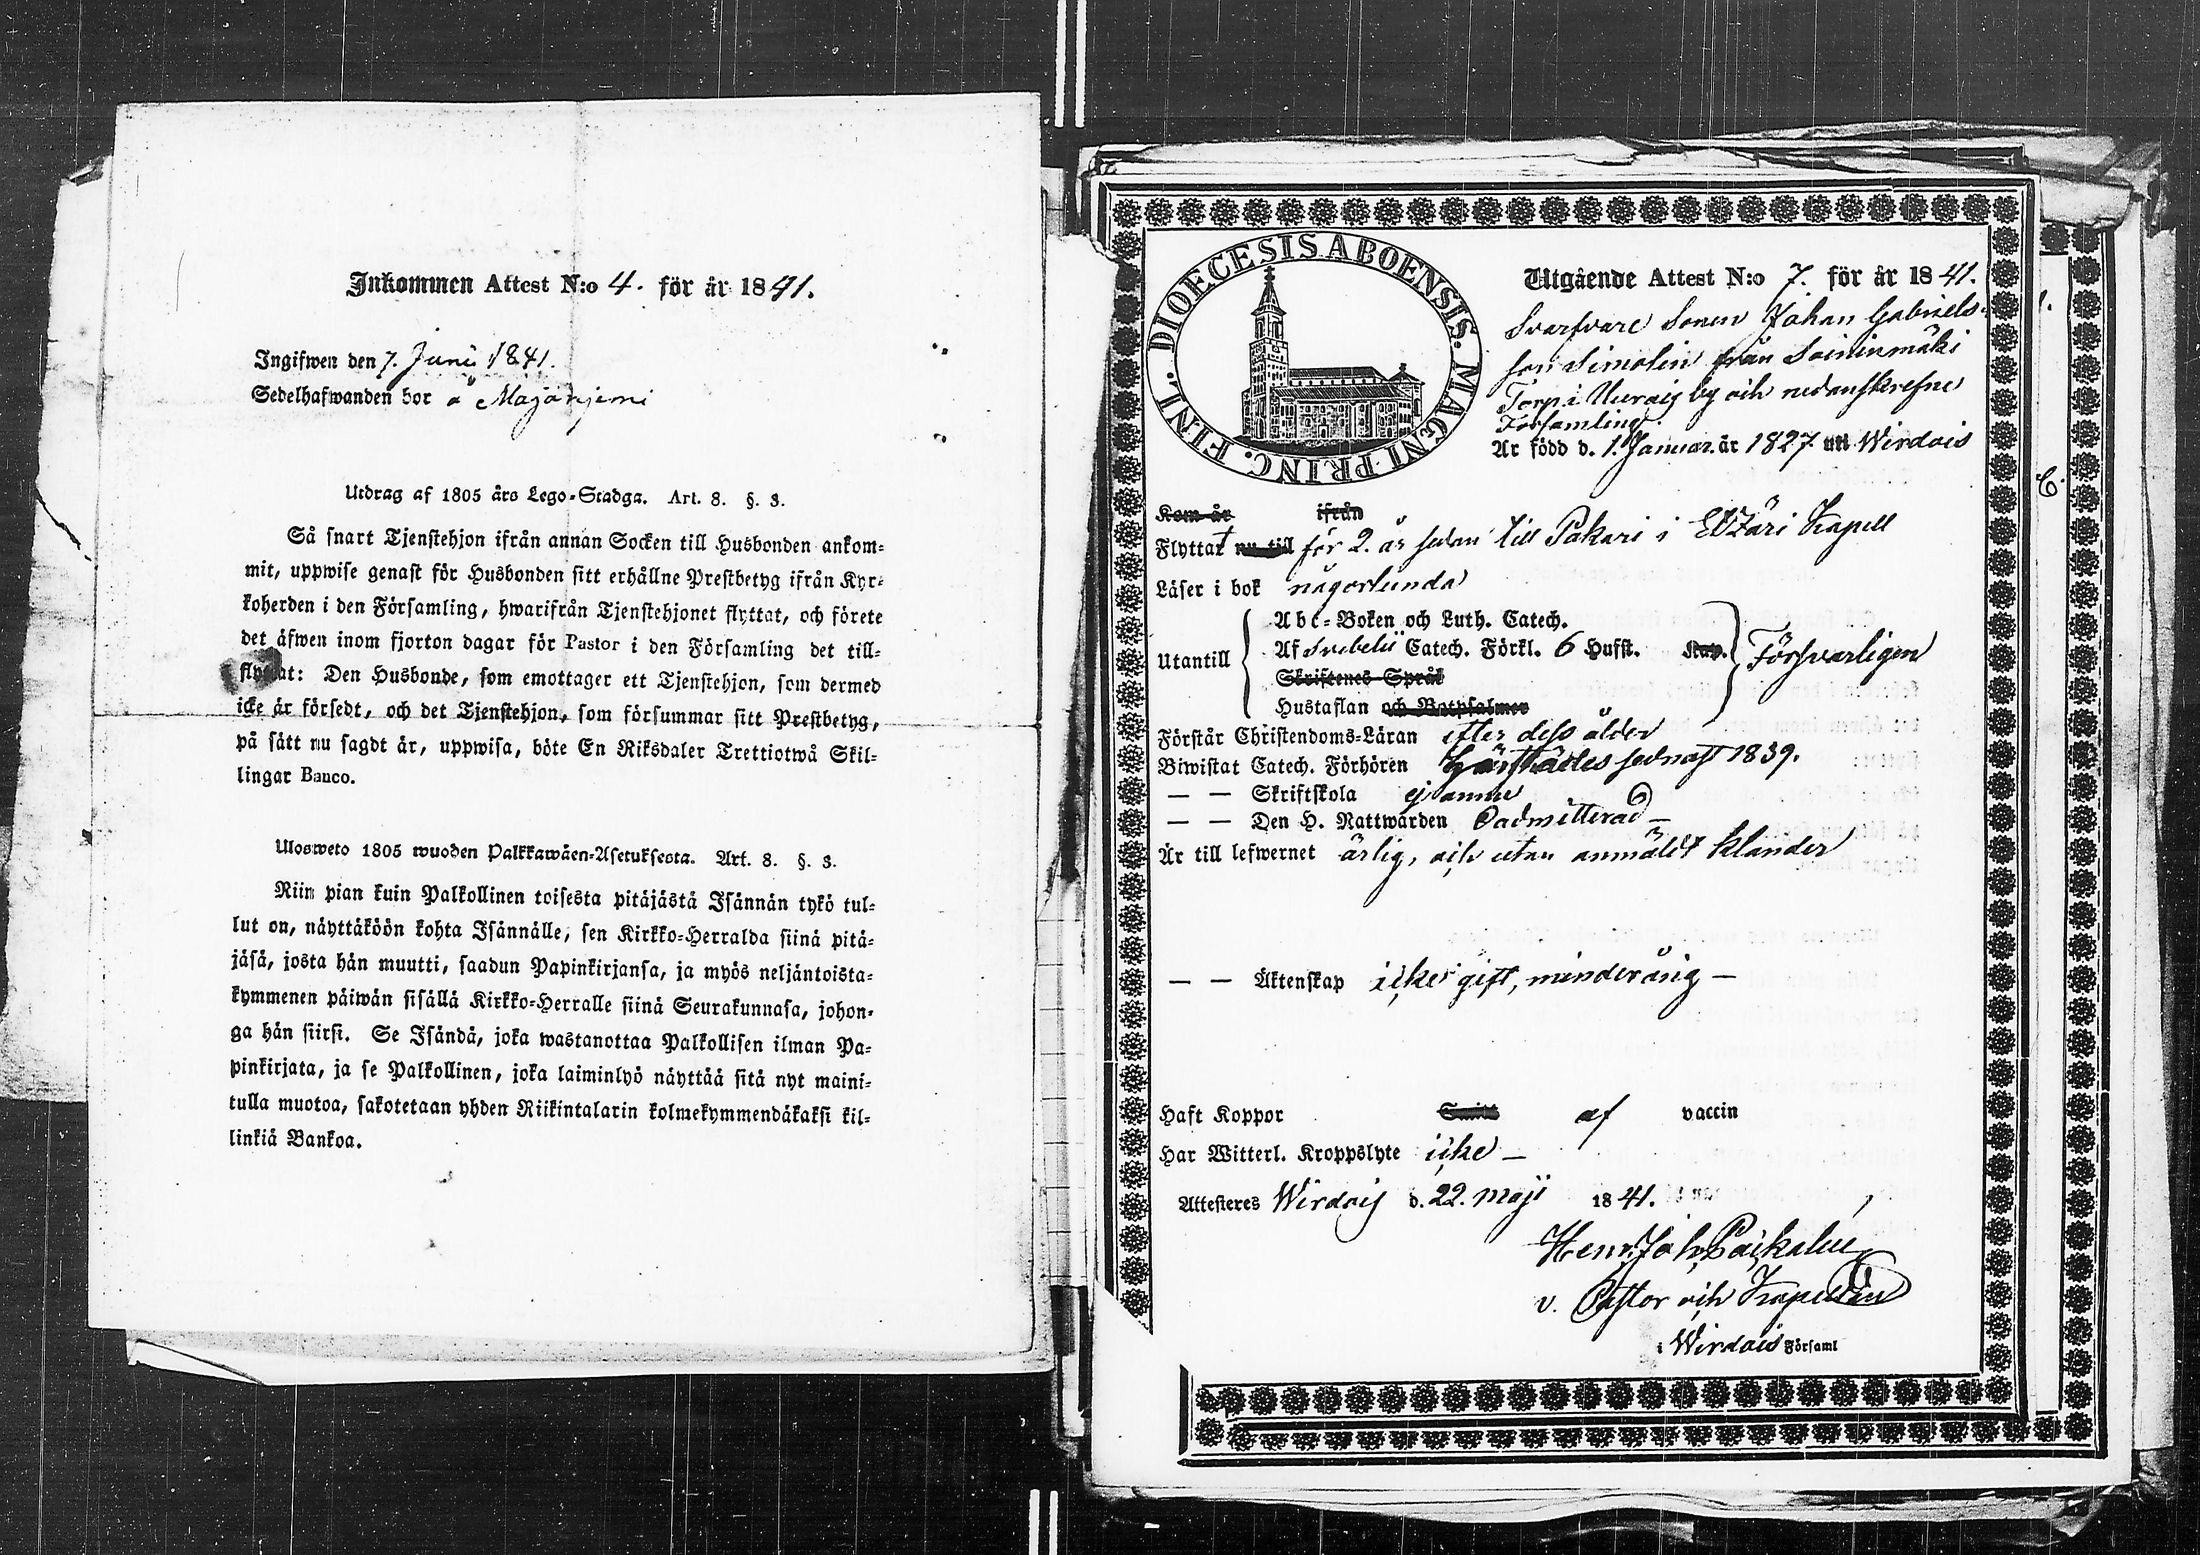 Inkommen Attest N:o 4. för år 1841.
Ingifwen den 7. Juni 1841.
Sedelhafwanden bor å Majaniemi
Utdrag af 1805 års Lego-Stadga. Art. 8. §. 3.
Så snart Tjenstehjon ifrån annan Socken till Husbonden ankom-
mit, uppwise genast för Husbonden sitt erhållne Prestbetyg ifrån Kyr-
koherden i den Församling, hwarifrån Tjenstehjonet flyttat, och förete
det äfwen inom fjorton dagar för Pastor i den Församling det till-
flyttat: Den Husbonde, som emottager ett Tjenstehjon, som dermed
icke är försedt, och det Tjenstehjon, som försummar sitt Prestbetyg,
på sätt nu sagdt är, uppwisa, böte En Riksdaler Trettiotwå Skil-
lingar Banco.
Ulosweto 1805 wuoden Palkkawäen-Asetuksesta. Art. 8. §. 3.
Niin pian kuin Palkollinen toisesta pitäjästä Isännän tykö tul-
lut on, näyttäköön kohta Isännälle, sen Kirkko-Herralda siinä pitä-
jäsä, josta hän muutti, saadun Papinkirjansa, ja myös neljäntoista-
kymmenen päiwän sisällä Kirkko-Herralle siinä Seurakunnasa, johon-
ga hän siirsi. Se Isändä, joka wastanottaa Palkollisen ilman Pa-
pinkirjata, ja se Palkollinen, joka laiminlyö näyttää sitä nyt maini-
tulla muotoa, sakotetaan yhden Riikintalarin kolmekymmendäkaksi kil-
linkiä Bankoa.
DIOECESIS ABOENSIS. MAGNI PRINC. FINL.
Utgående Attest N:o 7. för år 1841.
Svarfvare Sonen Johan Gabriels-
son Simolin från Soininmäki
Torp i Uurais by och nedanskrefne
Församling.
Är född d. 1. Januar. år 1827 uti Wirdois
Kom år ifrån
Flyttat nu till för 2. år sedan till Pakari i Etzäri Kapell
Läser i bok någorlunda
Abc-Boken och Luth. Catech.
Utantill Af Svebelii Catech. Förkl. 6 Hufst. Kap. Försvarligen
Skriftenes Språk
Hustaflan och Botpsalmer
Förstår Christendoms-Läran efter dess ålder
Biwistat Catech. Förhören härstädes sednast 1839.
— — Skriftskola ej ännu
— — Den H. Nattwarden Oadmitterad —
Är till lefwernet ärlig, och utan anmäldt klander
— — Äktenskap icke gift, minderårig —
Haft Koppor Smitt af vaccin
Har Witterl. Kroppslyte icke —
Attesteres Wirdois d. 22. Maji 1841.
Henr. Joh.
v. Pastor och Kapellan
i Wirdois Församl